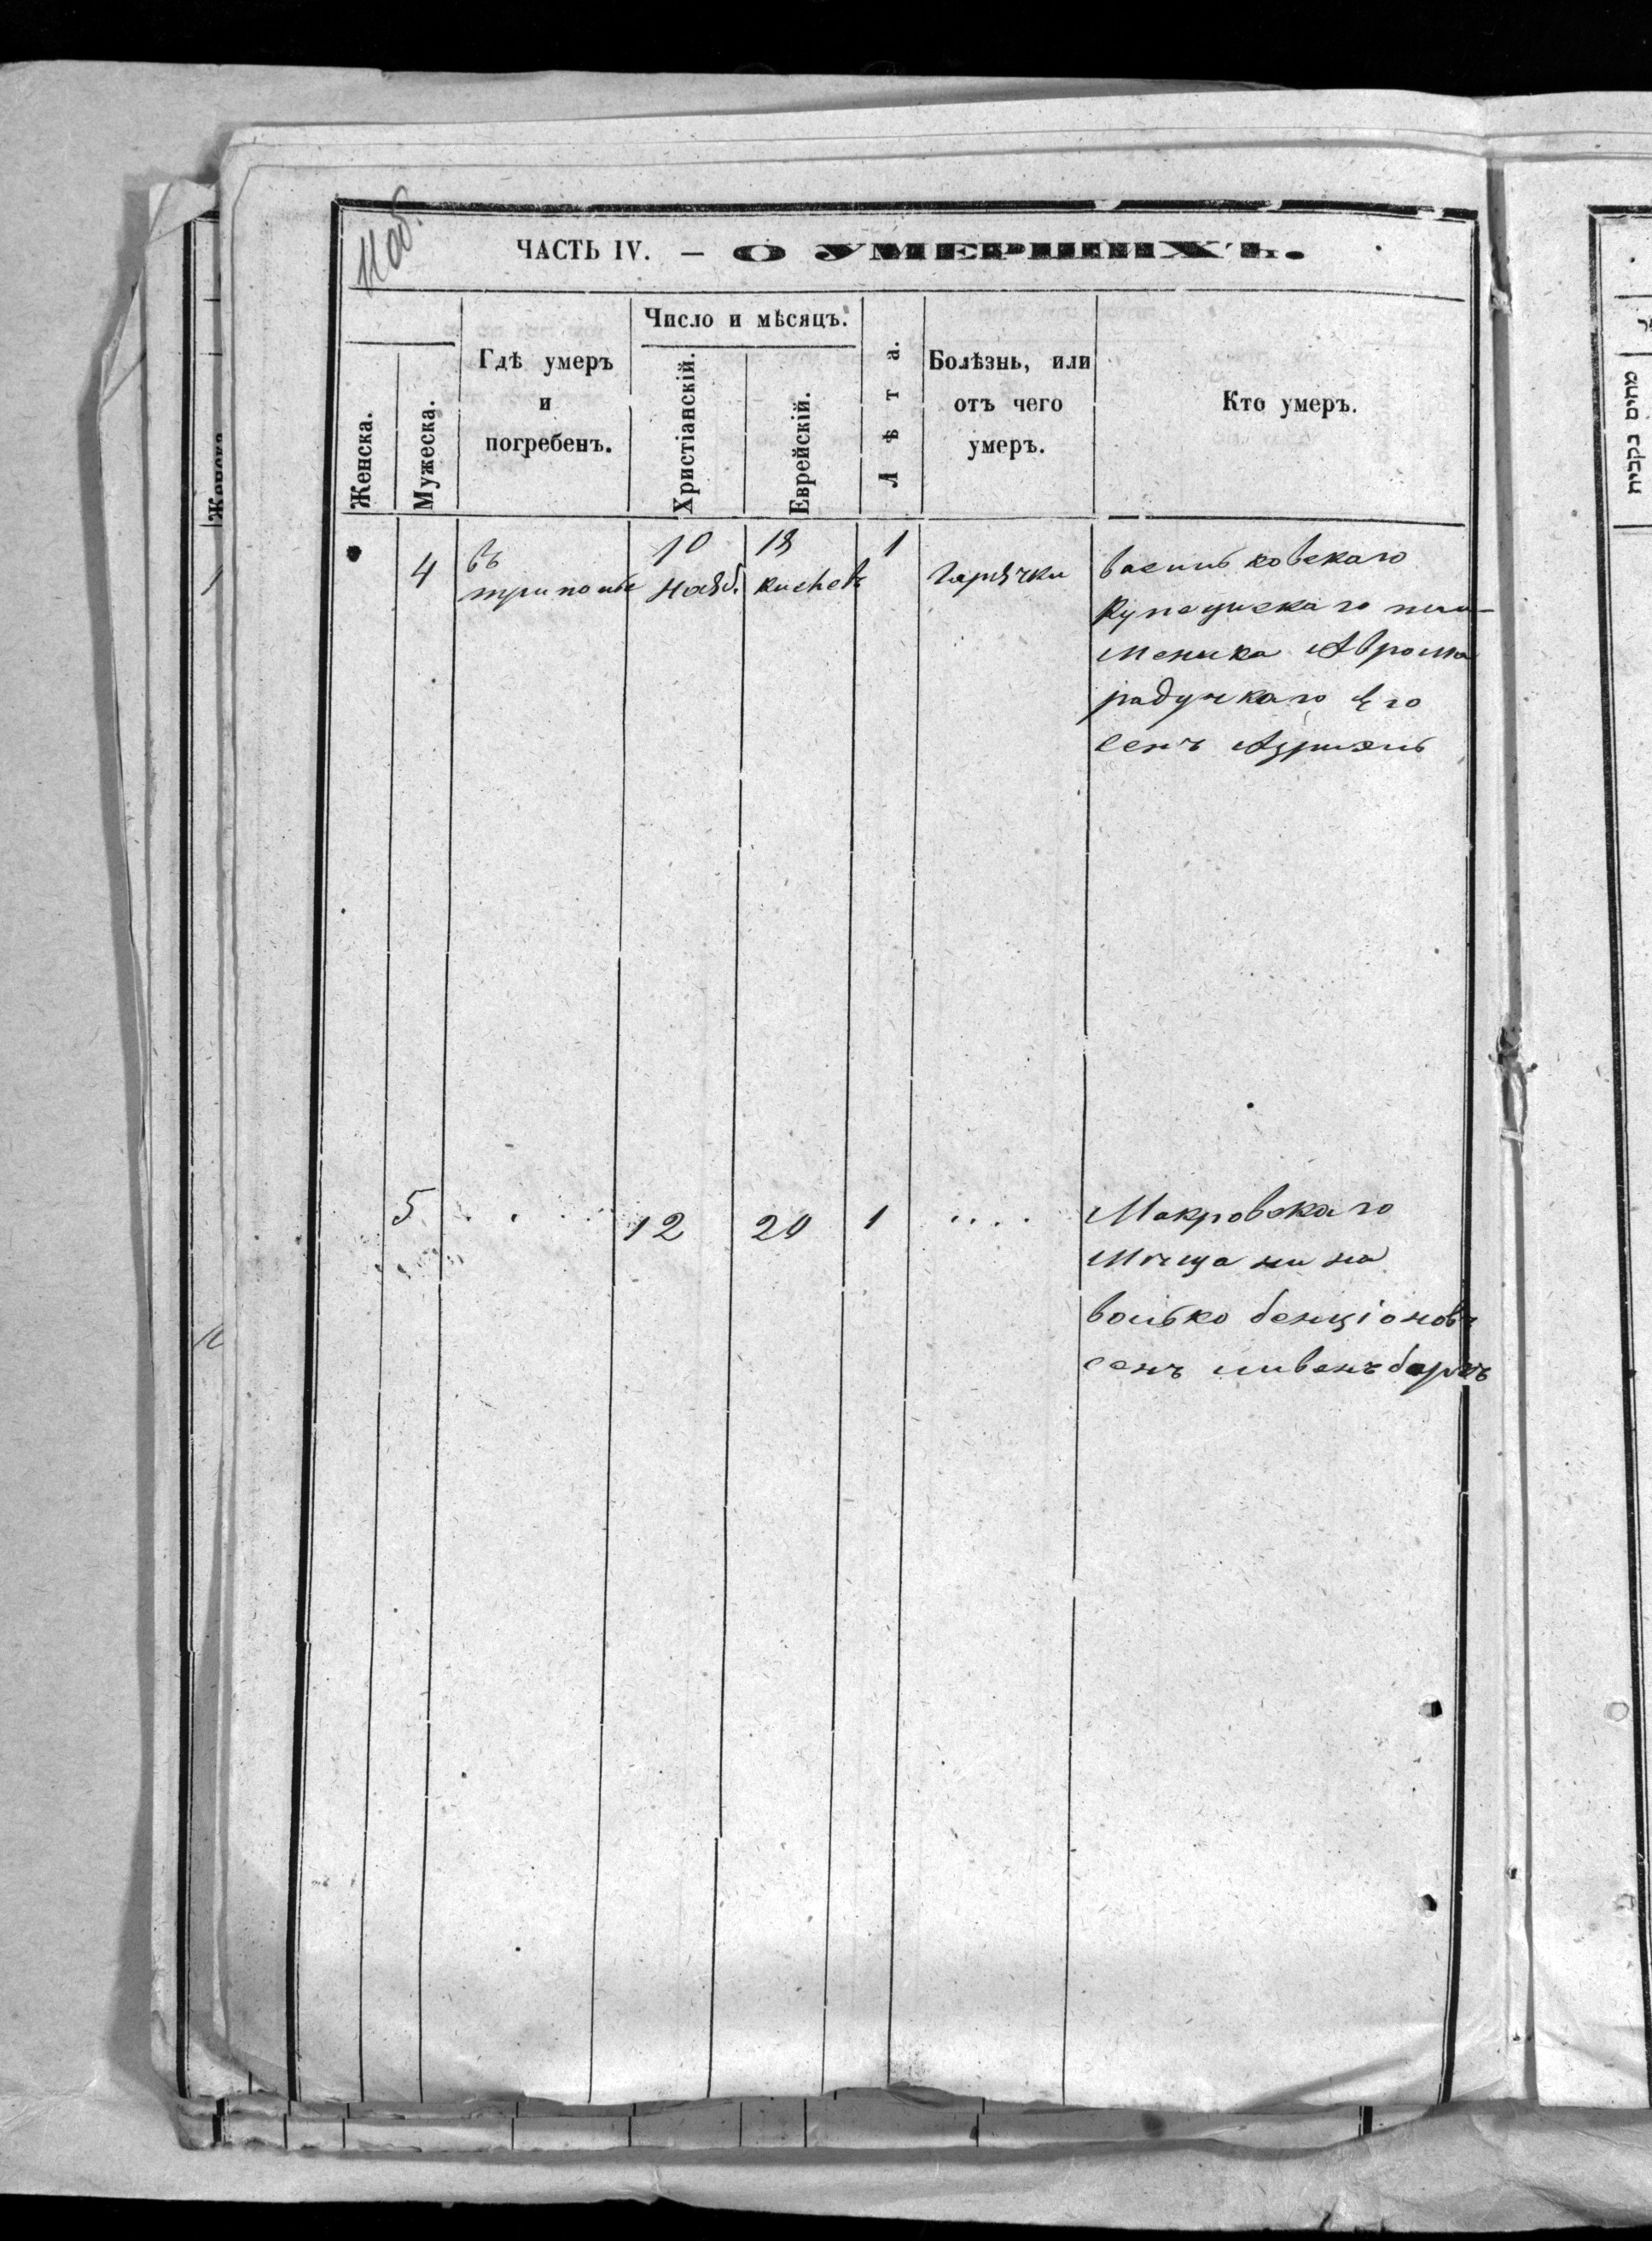 11 об.
ЧАСТЬ IV. — О УМЕРШИХЪ.
Женска.
Мужеска.
Гдѣ умеръ
и
погребенъ.
Число и мѣсяцъ.
Христіанскій.
Еврейскій.
Лѣта.
Болѣзнь, или
отъ чего
умеръ.
Кто умеръ.
4
въ
триполье
10
нояб.
18
кислевъ
1
Гарячки
васильковскаго
купеческаго
Аврома
радучкаго Его
сенъ Азриэль
5
. . . .
12
20
1
. . . .
Макровскаго
мещанина
волько бенціоновъ
сенъ
Женска
מחים נקבית